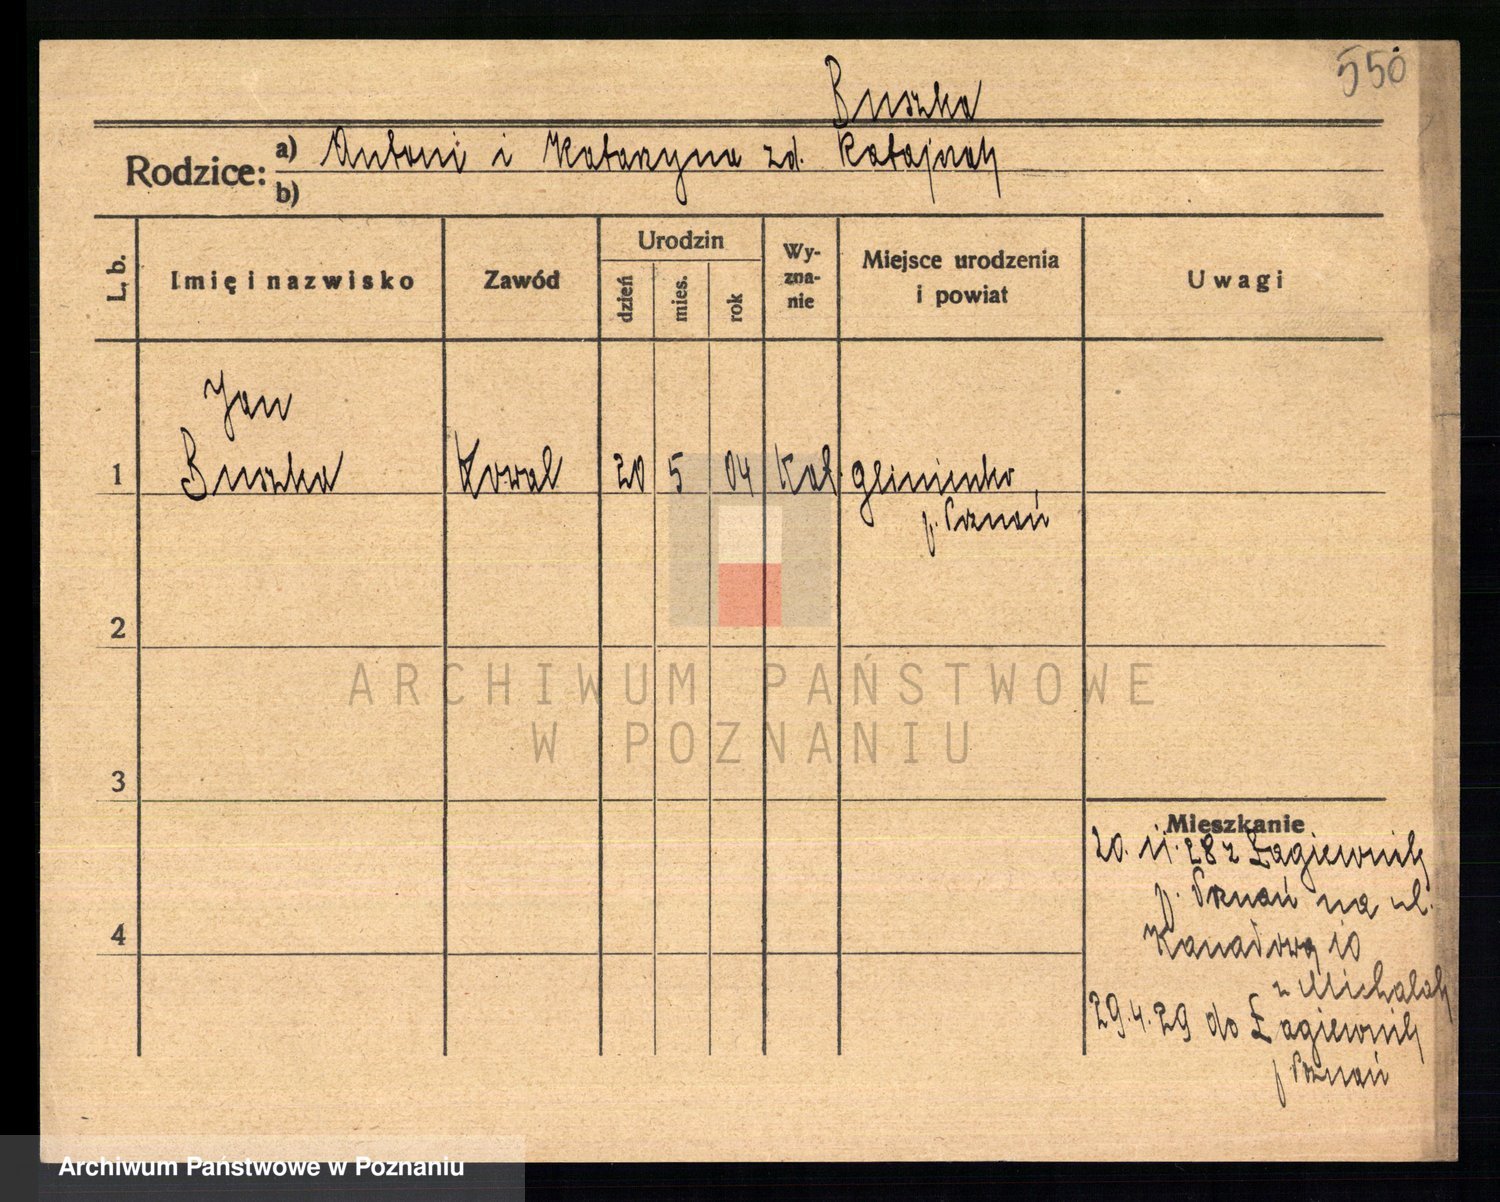 550
Buszka
Rodzice: a) Antoni i Katarzyna zd. Ratajczak
b)
L. b.
Imię i nazwisko
Zawód
Urodzin
dzień
mies.
rok
Wy-
zna-
nie
Miejsce urodzenia
i powiat
Uwagi
Jan
1 Buszka Kowal 20 5 04 Kat. Glinienko
p. Poznań
2
ARCHIWUM PAŃSTWOWE
W POZNANIU
3
Mieszkanie
20. 11. 28 z Łagiewnik
p. Poznań na ul.
4
Kanałową 10
z Michalak
29.4.29 do Łagiewnik
p Poznań
Archiwum Państwowe w Poznaniu